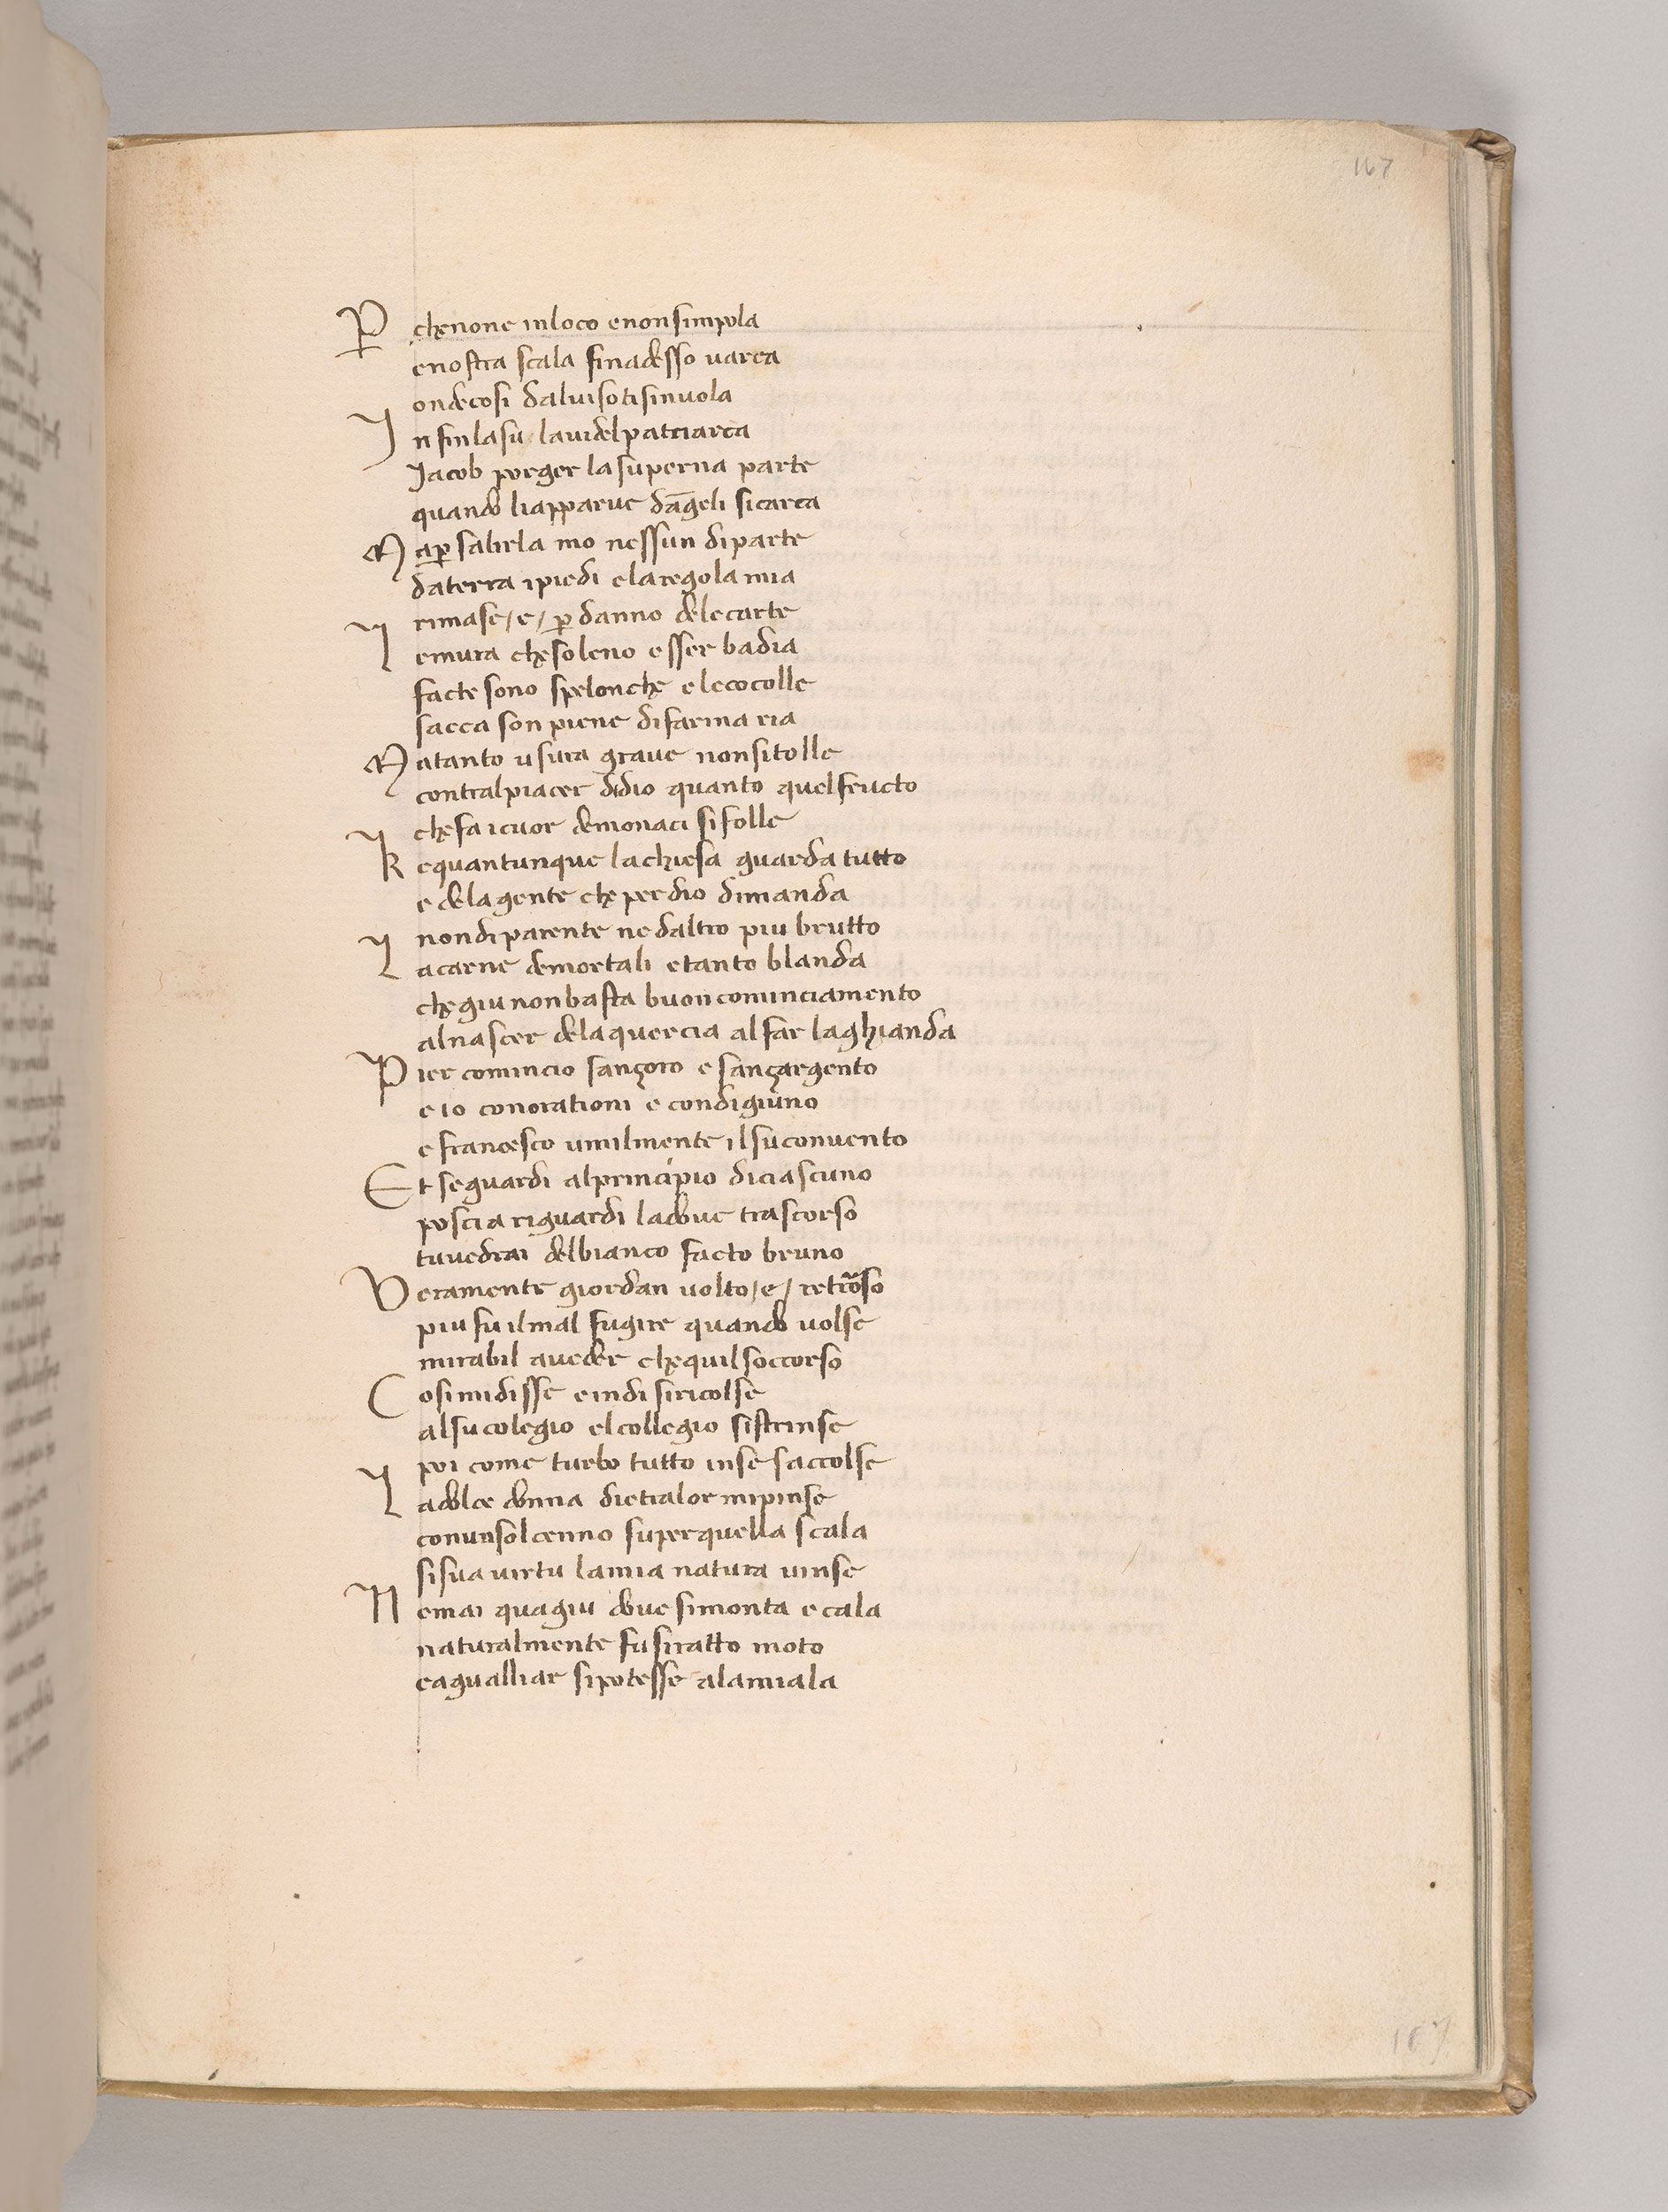 167
P chenone inloco enonsimpola
enostra scala sinadesso varca
ondecosi dalvisotisinvola
I nsinlasu lavidelpatriarca
Jacob porger lasuperna parte
quando liapparue dāgeli sicarca
M ap̱ salirla mo nessun diparte
daterra ipiedi elaregola mia
rimase/e/ p̱ danno delecarte
L emura chesoleno esser badia
facte sono spelonche elecocolle
sacca son piene difarina ria
M atanto usura graue nonsitolle
contralpiacer didio quanto quelfructo
chefa icuor demonaci sifolle
K equantunque lachiesa guarda tutto
e delagente che per dio dimanda
nondiparente nedaltro piu brutto
L acarne demortali etanto blanda
chegiu nonbasta buon cominciamento
alnascer delaquercia alfar laghianda
P ier comincio sançoro e sançargento
e io conorationi e condigiuno
e francesco umilmente ilsuconvento
E t seguardi alprincipio diciascuno
poscia riguardi ladoue trascorso
tuvedrai delbianco facto bruno
V eramente giordan volto/e/ retroso
piu fu ilmal fugire quando volse
mirabil aueder chequilsoccorso
C osimidisse eindi siricolse
alsucolegio elcollegio sistrinse
poi come turbo tutto inse saccolse
L adolce donna dietralor mipinse
conunsolcenno superquella scala
sisua virtu lamia natura vinse
N emai quagiu doue simonta e cala
naturalmente fusiratto moto
cagualliar sipotesse alamiala
167